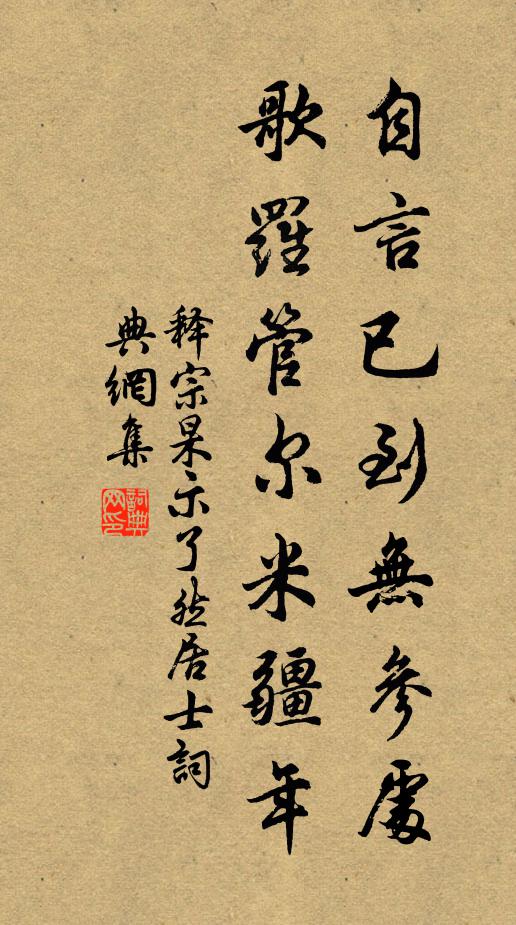 自言已到無參處
歌羅管尔米疆年
释宗杲示了然居士詞
典網集
詞典网印